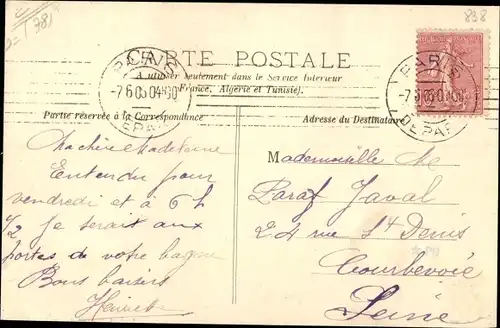 838
CARTE POSTALE
A utiliser seulement dans le Service Intérieur
(France, Algérie et Tunisie).
PARIS
-7 6 05 04 30
DEPART
PARIS
DEPART
Partie réservée à la Correspondance
Adresse du Destinataire
Ma chère Madeleine
Entendu pour
vendredi et à 6 h
1/2 Je serait aux
portes de votre
Bons baisers
Mademoiselle
Paraf Javal
24 rue St Denis
Courbevoie
Seine